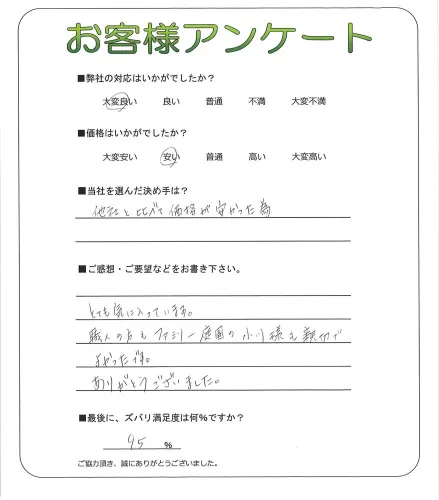 お客様アンケート
■弊社の対応はいかがでしたか？
大変良い 良い 普通 不満 大変不満
■価格はいかがでしたか？
大変安い 安い 普通 高い 大変高い
■当社を選んだ決め手は？
他社と比べて価格が安かった為
■ご感想・ご要望などをお書き下さい。
とても気に入っています。
職人の方もファミリー庭園の小川様も親切で
よかったです。
ありがとうございました。
■最後に、ズバリ満足度は何%ですか？
95 %
ご協力頂き、誠にありがとうございました。